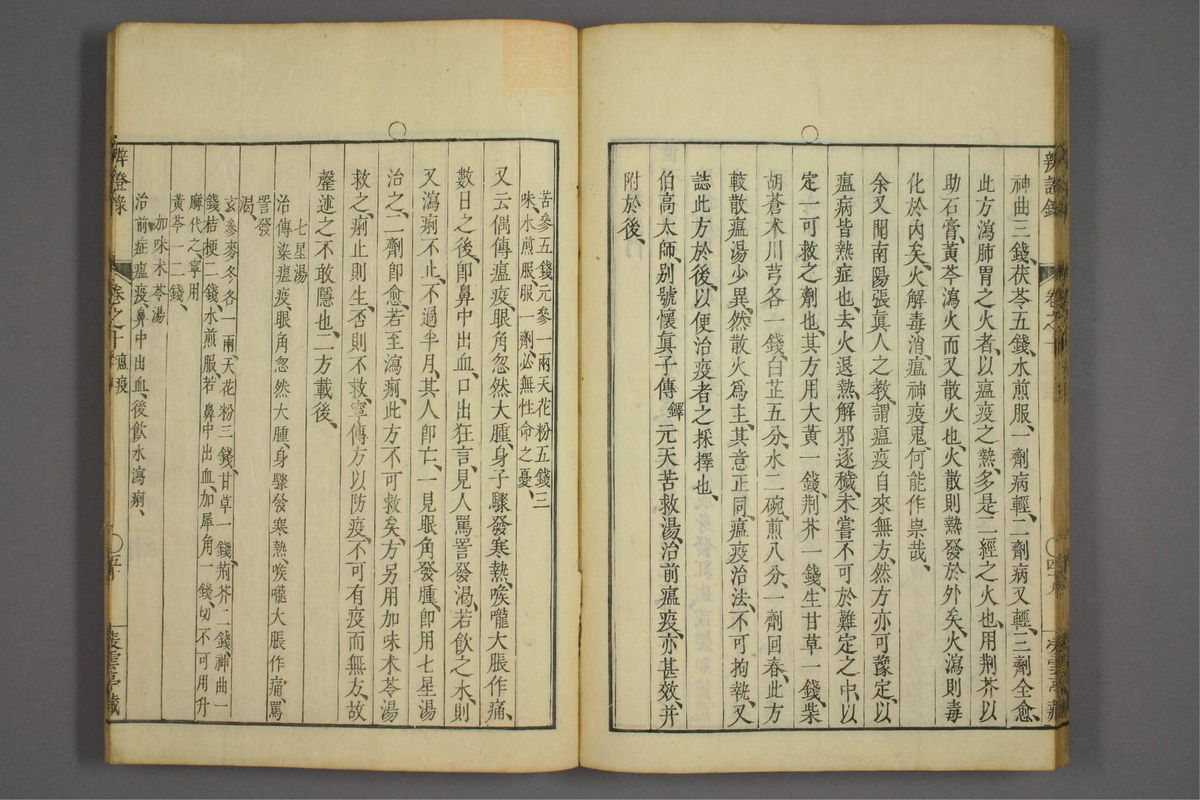 神曲三錢茯苓五錢、水煎服、一劑病輕、二劑病又輕、三劑全愈、
此方瀉肺胃之火者、以瘟疫之熱、多是二經之火也、用荆芥以
助石膏、黃芩瀉火而又散火也、火散則熱發於外矣、火瀉則毒
化於內矣、火解毒消、瘟神疫鬼、何能作祟哉、
余又聞南陽張眞人之教、謂瘟疫自來無方、然方亦可豫定、以
瘟病皆熱症也、去火退熱、解邪逐穢、未嘗不可於難定之中、以
定一可救之劑也、其方用大黃一錢、荆芥一錢、生甘草一錢、柴
胡蒼术川芎各一錢、白芷五分、水二碗、煎八分、一劑回春、此方
較散瘟湯少異、然散火爲主、其意正同、瘟疫治法、不可拘執、又
誌此方於後、以便治疫者之採擇也、
伯高太師、别號懷眞子傳鐸元天苦救湯、治前瘟疫、亦甚效、并
附於後、
辨證錄
卷之十
苦參五錢元參一兩天花粉五錢三
味、水煎服、服一劑必無性命之憂、
又云偶傳瘟疫眼角忽然大腫、身子驟發寒熱、喉嚨大脹作痛、
數日之後、卽鼻中出血、口出狂言、見人罵詈發渴、若飲之水、則
又瀉痢不止、不過半月、其人卽亡、一見眼角發腫、卽用七星湯
治之、二劑卽愈、若至瀉痢、此方不可救矣、方另用加味术苓湯
救之、痢止則生、否則不救、寧傳方以防疫、不可有疫而無方、故
罄述之不敢隱也、二方載後、
七星湯
治傳染瘟疫眼角忽然大腫、身驟發寒熱、喉嚨大脹作痛、罵
詈發
渴、
玄參麥冬各一兩天花粉三錢、甘草一錢、荆芥二錢、神曲一
錢、桔梗二錢、水煎服、若鼻中出血、加犀角一錢、切不可用升
麻代之、寧用
黃芩一二錢、
加味术苓湯
治前症瘟疫、鼻中出血、後飲水瀉痢、
辨證錄
卷之十
瘟疫
五十